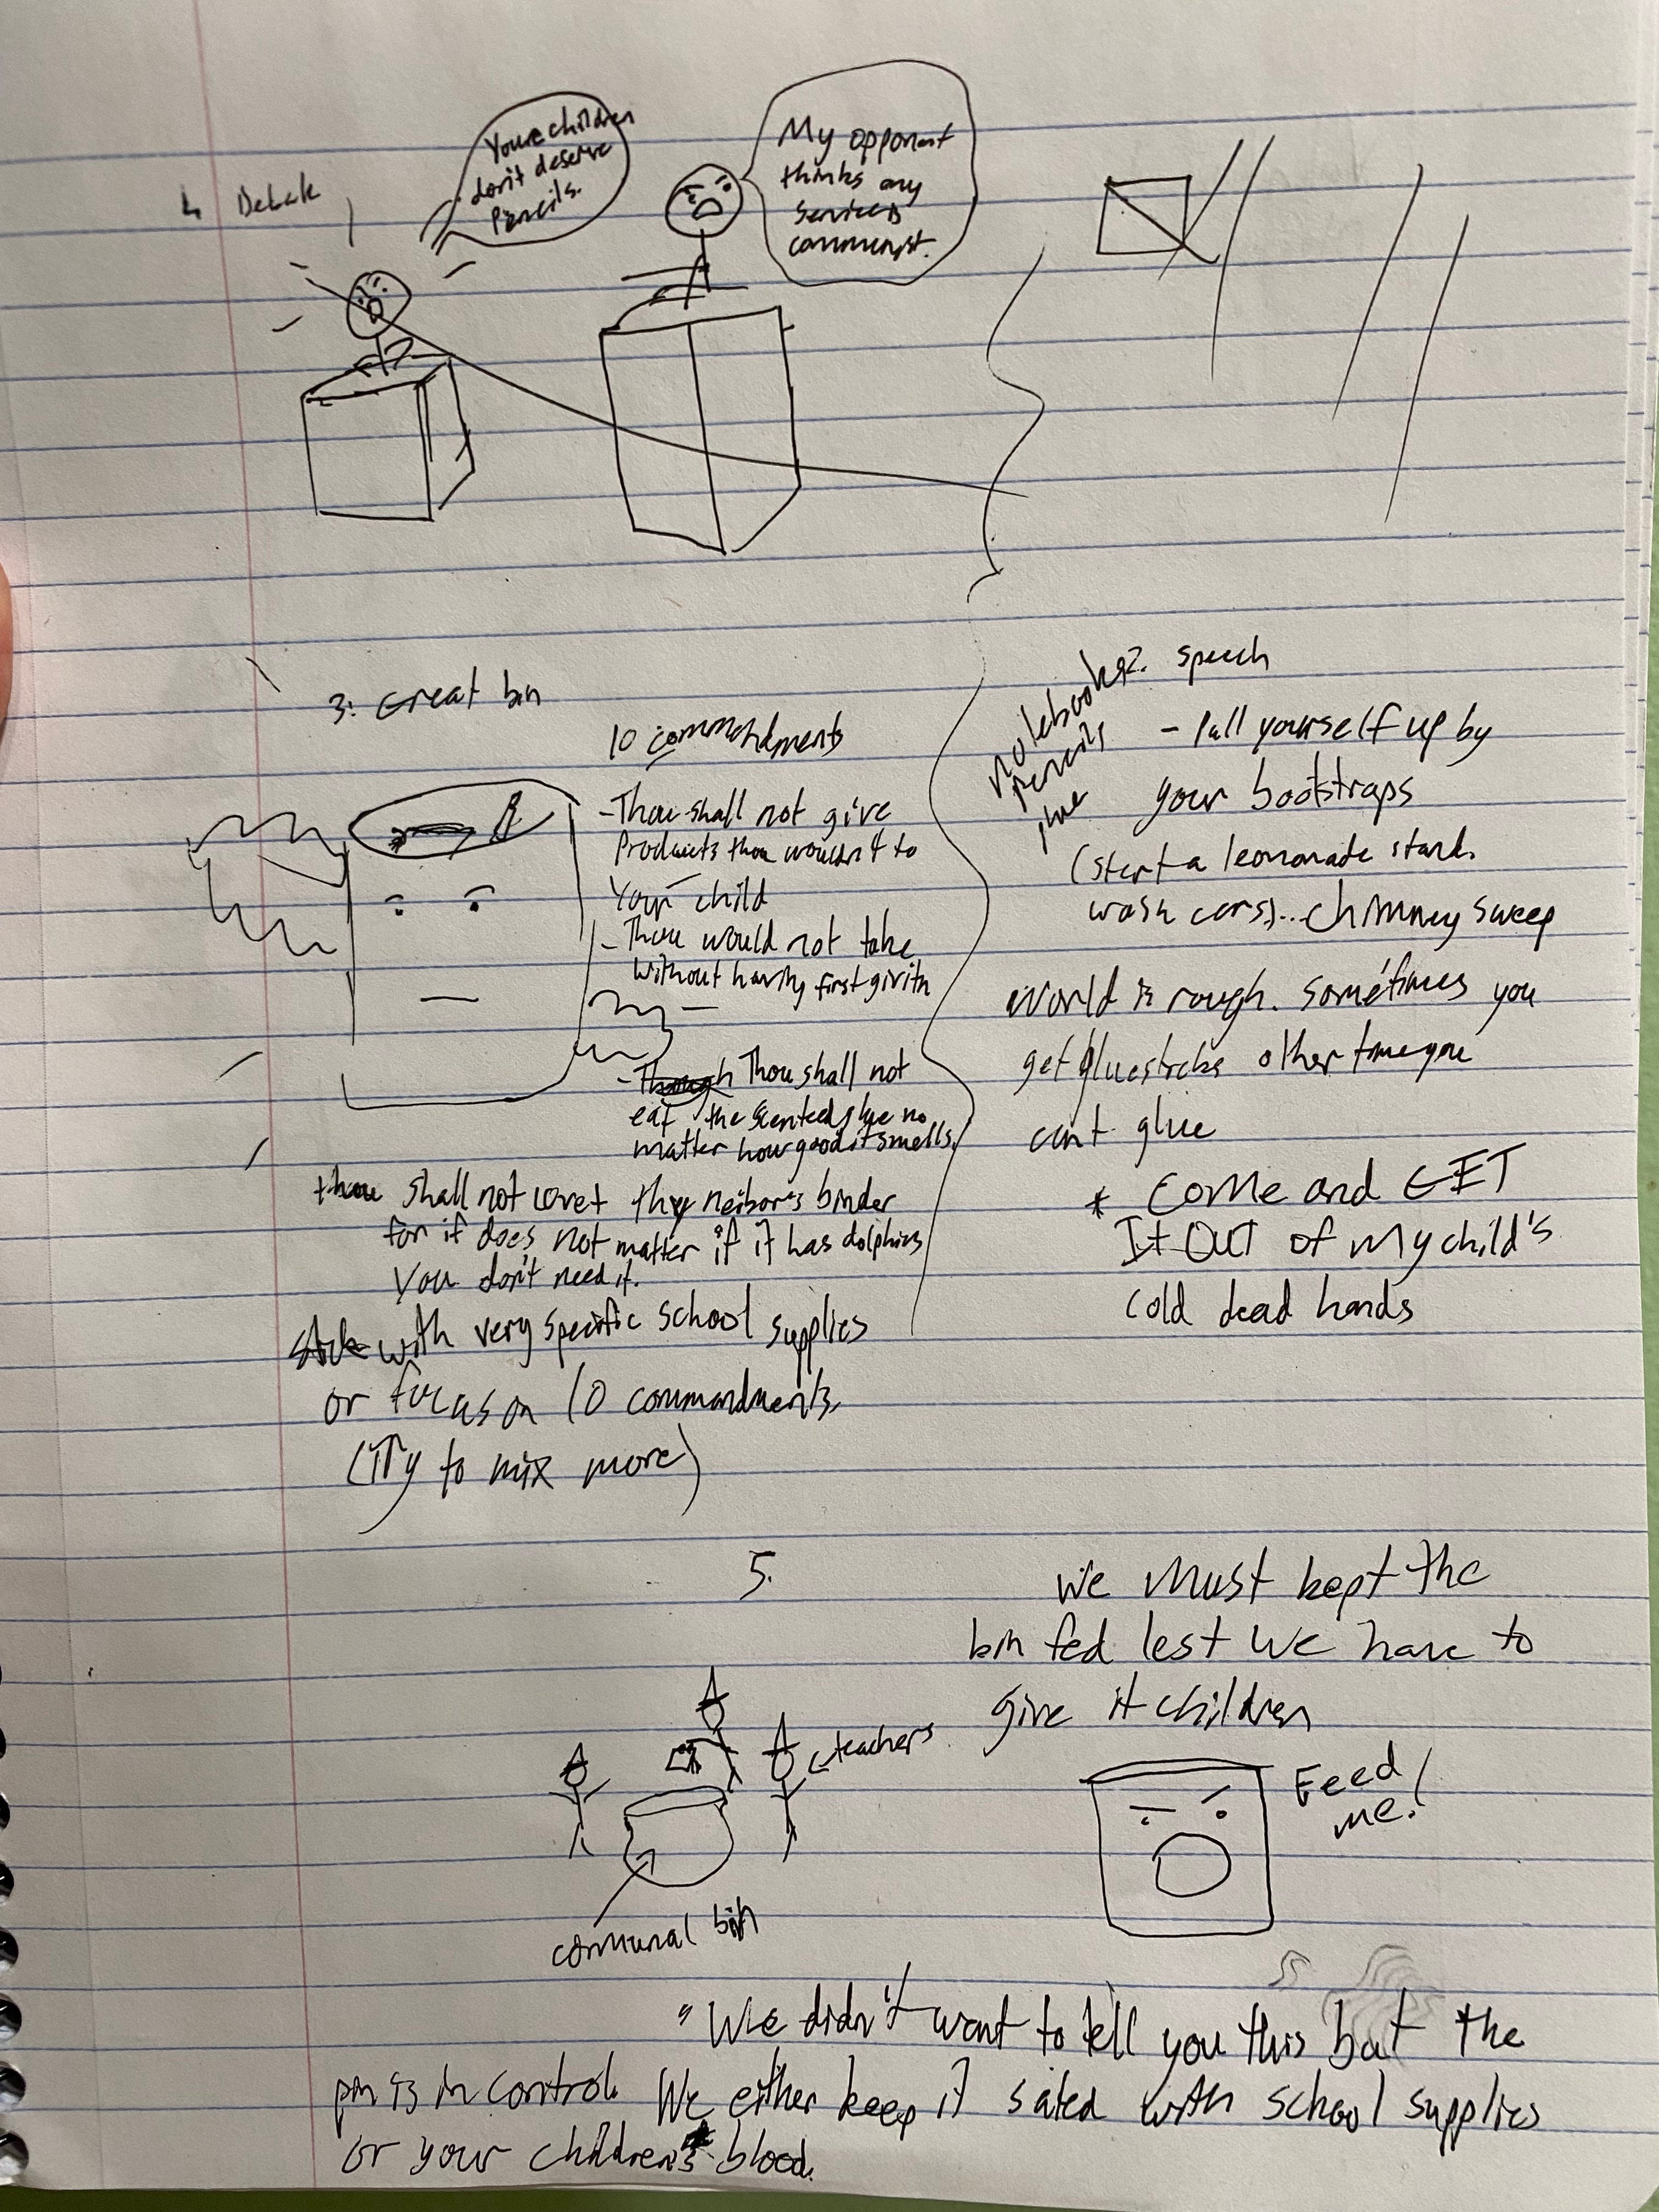 4 Debate
Youre children
don't deserve
Pencils.
My opponent
thinks any
service is
communist.
3: Great bin
10 commendments
- Thou shall not give
Products thou wouldn't to
Your child
- Thou would not take
without having first givith
- Though Thou shall not
eat the scented glue no
matter how good it smells.
thou shall not covet thy neibor's binder
for it does not matter if it has dolphins
You don't need it.
with very specific school supplies
or focus on 10 commandments.
(Try to mix more)
notebooks
pencils
glue
2. speech
- Pull yourself up by
your bootstraps
(start a lemonade stand.
wash cars)... chimney sweep
World is rough. sometimes you
get gluesticks other time you
can't glue
* Come and GET
It OUT of My child's
cold dead hands
5.
We Must kept the
bin fed lest we have to
give it children
teachers
communal bin
Feed
me!
"We didn't want to tell you this but the
bin is in control. We either keep it sated with school supplies
or your children's blood.